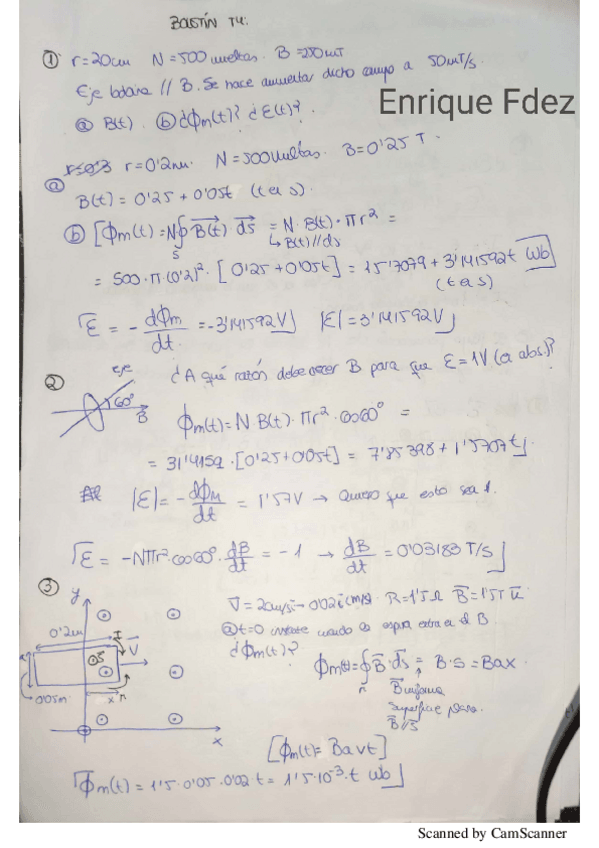 BOLETÍN T4.
① r=20cm N=500 vueltas. B=250mT
Eje bobina // B. Se hace aumentar dicho campo a 50mT/s.
ⓐ B(t). ⓑ ¿Φm(t)? ¿ε(t)?
Enrique Fdez
r=0'2m. N=500 vueltas. B=0'25 T.
ⓐ
B(t) = 0'25 + 0'05t (t a s).
ⓑ [Φm(t) = N∮ B(t) ds = N·B(t)·πr² =
S ↳ B(t)//ds
= 500·π·(0'2)²·[0'25+0'05t] = 15'7079 + 3'141592t Wb]
(t a s)
ε = - dΦm/dt = -3'141592V |ε| = 3'141592V
¿A qué razón debe crecer B para que ε=1V (a abs)?
② eje 60° B
Φm(t) = N·B(t)·πr²·cos60° =
= 31'4159·[0'25+0'05t] = 7'85398 + 1'5707t
|ε| = - dΦm/dt = 1'57V → Quiero que esto sea 1.
ε = -Nπr²·cos60°· dB/dt = -1 → dB/dt = 0'03183 T/s
③ y
V = 2cm/s i = 0'02 i (m/s) R=1'5Ω B=1'5T u
0'2m I V
@t=0 cuando la espira entra a el B
¿Φm(t)?
Φm(t) = ∮ B·ds = B·S = Bax
0'05m x n
B uniforme
Superficie plana.
B//S
x
[Φm(t) = Bavt]
Φm(t) = 1'5·0'05·0'02 t = 1'5·10⁻³·t Wb
Scanned by CamScanner